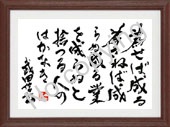 為せば成る
為さねば成
らぬ成る業
を成らぬと
捨つる人の
はかなき
武田信玄